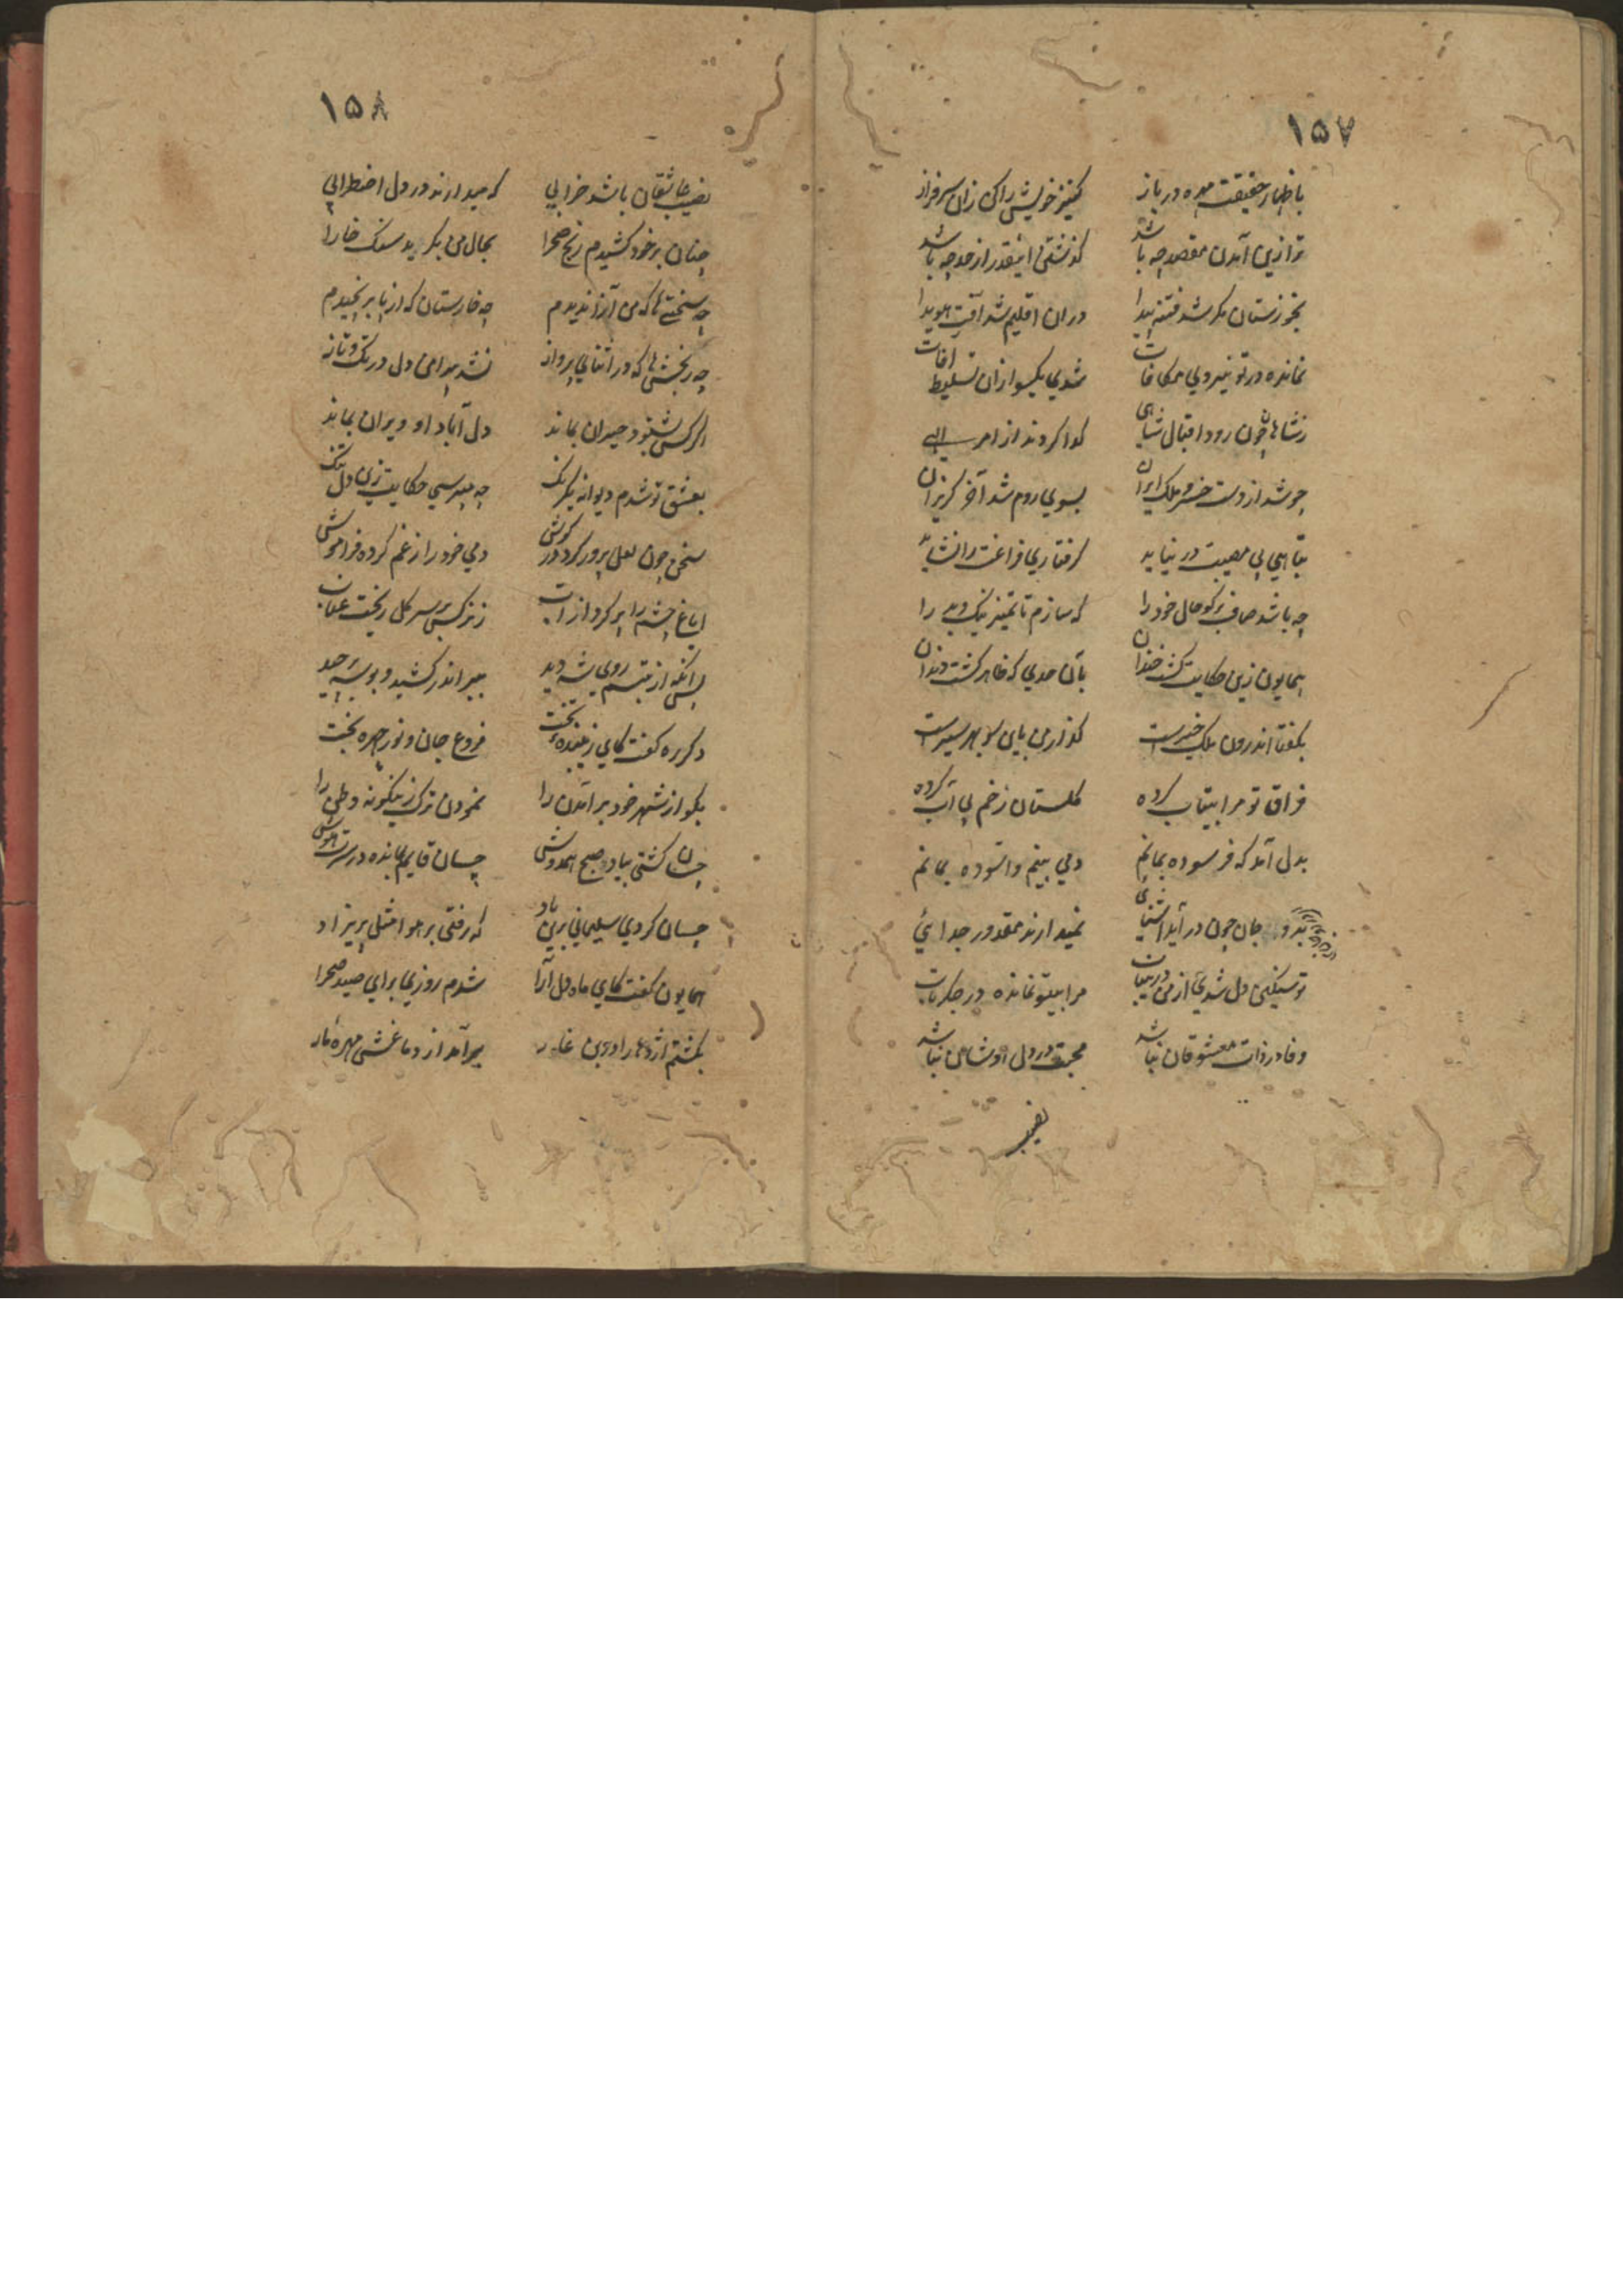 ١٥٧
باظهار حقیقت مهره در باز کنیز خویش را کن زان سرفراز
ترا زین آمدن مقصد چه باشد گذشتن اینقدر از حد چه باشد
بخوزستان مگر شد فتنه پیدا در ان اقلیم شد آفت هویدا
نمانده در تو نیروی مکافات شدی یکسو ازان تسلیط افات
زشاهان چون رود اقبال شاهی گدا کردند از امر الهی
چو شد از دست خسرو ملک ایران بسوی روم شد آخر گریزان
تباهی بی مصیبت در نیاید گرفتاری فراغت را نشاید
چه باشد صاف برگو حال خود را که سازم تا تمیز نیک و بد را
همایون زین حکایت گشت خندان بآن حدی که ظاهر گشت دندان
بگفتا اندرون ملک خیرست گذار من باین سو بهر سیرست
فراق تو مرا بیتاب کرده گلستان رخم بی آب کرده
بدل آمد که فرسوده بمانم دمی بینم و آسوده بمانم
جان چون در آید آشنائی نمیدارند مقدور جدائی
تو سنگین دل شدی از من مرا بیتو نمانده در جگر تاب
وفا در ذات معشوقان نباشد محبت در دل اوشان نباشد
نصیب
١٥٨
نصیب عاشقان باشد خرابی که میدارند در دل اضطرابی
چنان بر خود کشیدم رنج صحرا بحال من بگرید سنگ خارا
چه سختی ها که من آنرا ندیدم چه خارستان که از پا بر نچیدم
چه رنجش ها که در اثنای پرواز نشد پیدا من دل در تک و تاز
اگر کس بشنود حیران بماند دل آباد او ویران بماند
بعشق تو شدم دیوانه یکرنگ چه میپرسی حکایت زین دل تنگ
سخن چون لعل پرور کرد در گوش دمی خود را ز غم کرده فراموش
ایاغ چشم را پر کرد از آب ز نرگس بر سر گل ریخت عناب
پس آنکه از تبسم روی شه دید ببر اندر کشید و بوسه چید
دگر ره گفت کای زیبنده تخت فروغ جان و نور چهره بخت
بگو از شهر خود بر آمدن را نمودن ترک زینگونه وطن را
چسان گشتی بباد صبح همدوش چسان قایم بمانده در سرت هوش
چسان کردی سلیمانی برین باد که رفتی بر هوا مثل پریزاد
همایون گفت کای ماه دل آرا شدم روزی برای صید صحرا
بکشتم اژدها را درین غار برآمد از دماغش مهره مار